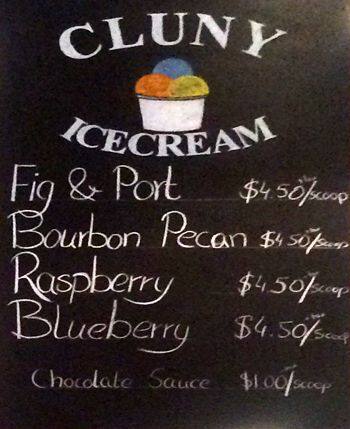 CLUNY
ICECREAM
Fig & Port $4.50/scoop
Bourbon Pecan $4.50/scoop
Raspberry $4.50/scoop
Blueberry $4.50/scoop
Chocolate Sauce $1.00/scoop